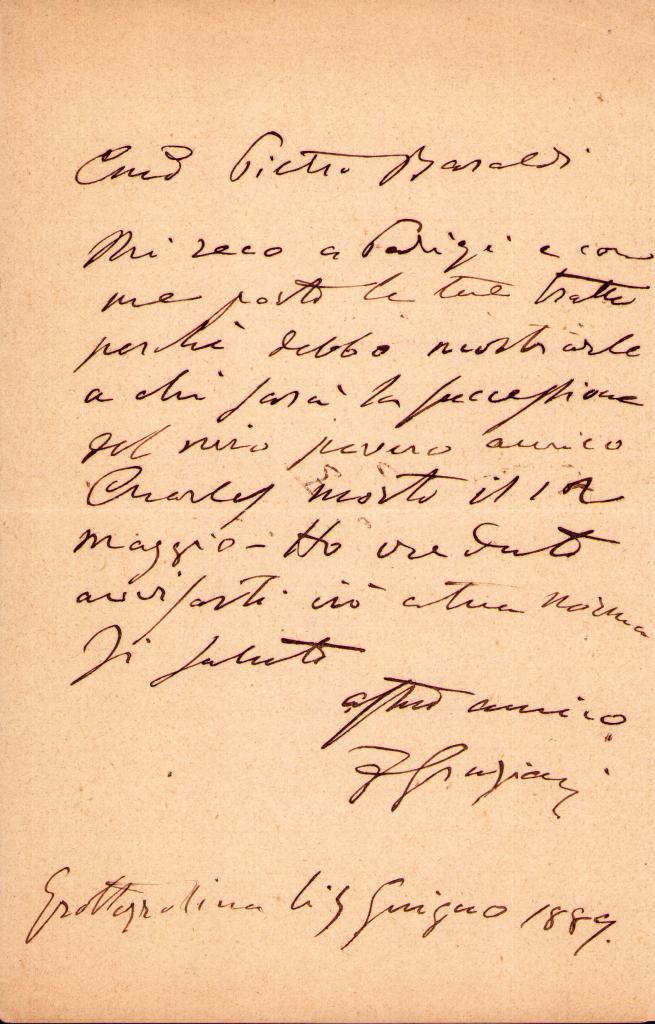 Pietro Baraldi
Mi reco a Parigi e con
me porto le tue tratte
perchè debbo mostrarle
a chi farà la successione
del mio povero amico
Charles morto il 12
maggio - Ho creduto
avvisarti ciò a tua norma
Ti saluto
affmo amico
F Graziani
Grottazzolina li Giugno 1889.